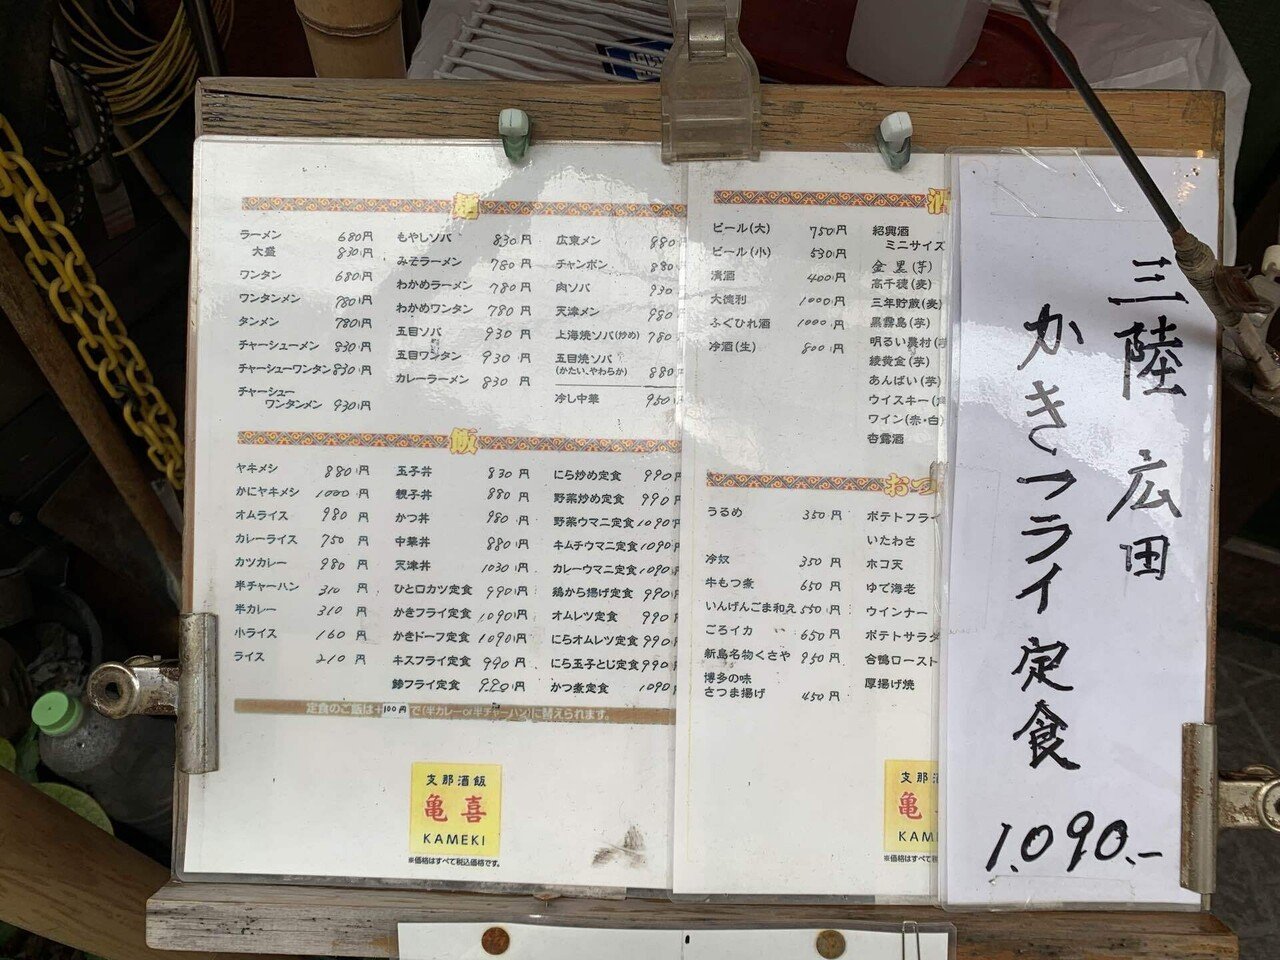 麺
ラーメン 680円
大盛 830円
ワンタン 680円
ワンタンメン 780円
タンメン 780円
チャーシューメン 830円
チャーシューワンタン 830円
チャーシュー
ワンタンメン 930円
もやしソバ 830円
みそラーメン 780円
わかめラーメン 780円
わかめワンタン 780円
五目ソバ 930円
五目ワンタン 930円
カレーラーメン 830円
広東メン 880
チャンポン 880
肉ソバ 930
天津メン 980
上海焼ソバ(炒め) 780
五目焼ソバ
(かたい、やわらか) 880
冷し中華 950
飯
ヤキメシ 880円
かにヤキメシ 1000円
オムライス 980円
カレーライス 750円
カツカレー 980円
半チャーハン 310円
半カレー 310円
小ライス 160円
ライス 210円
玉子丼 830円
親子丼 880円
かつ丼 980円
中華丼 880円
天津丼 1030円
ひと口カツ定食 990円
かきフライ定食 1090円
かきドーフ定食 1090円
キスフライ定食 990円
鯵フライ定食 990円
にら炒め定食 990円
野菜炒め定食 990円
野菜ウマニ定食 1090円
キムチウマニ定食 1090円
カレーウマニ定食 1090円
鶏から揚げ定食 990円
オムレツ定食 990円
にらオムレツ定食 990円
にら玉子とじ定食 990円
かつ煮定食 1090円
定食のご飯は+100円で(半カレーor半チャーハン)に替えられます。
支那酒飯
亀喜
KAMEKI
※価格はすべて税込価格です。
酒
ビール(大) 750円
ビール(小) 530円
清酒 400円
大徳利 1000円
ふぐひれ酒 1000円
冷酒(生) 800円
紹興酒
ミニサイズ
金黒(芋)
高千穂(麦)
三年貯蔵(麦)
黒霧島(芋)
明るい農村(芋
綾黄金(芋)
あんばい(芋)
ウイスキー(
ワイン(赤・白)
杏露酒
おつ
うるめ 350円
冷奴 350円
牛もつ煮 650円
いんげんごま和え 550円
ごろイカ 650円
新島名物くさや 950円
博多の味
さつま揚げ 450円
ポテトフライ
いたわさ
ホコ天
ゆで海老
ウインナー
ポテトサラダ
合鴨ロースト
厚揚げ焼
支那酒
亀
KAM
※価格はすべて税込
三陸 広田
かきフライ定食
1,090.-